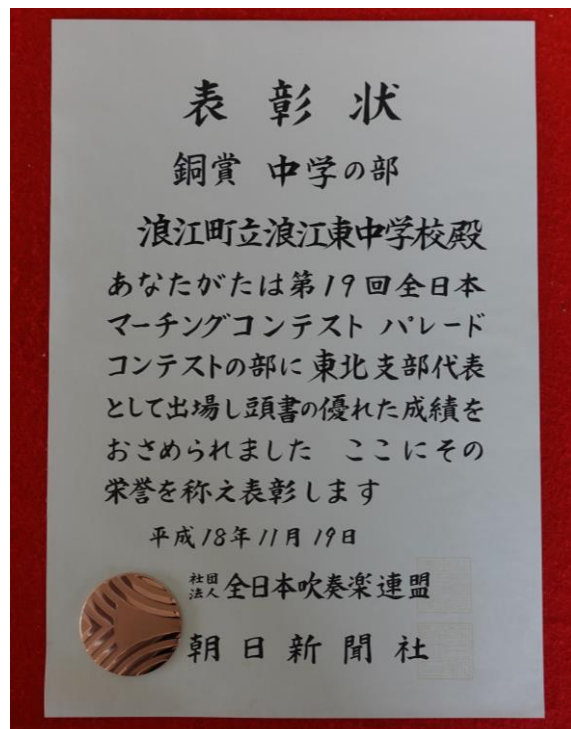 表彰状
銅賞 中学の部
浪江町立浪江東中学校殿
あなたがたは第19回全日本
マーチングコンテスト パレード
コンテストの部に東北支部代表
として出場し頭書の優れた成績を
おさめられました ここにその
栄誉を称え表彰します
平成18年11月19日
社団法人 全日本吹奏楽連盟
朝日新聞社